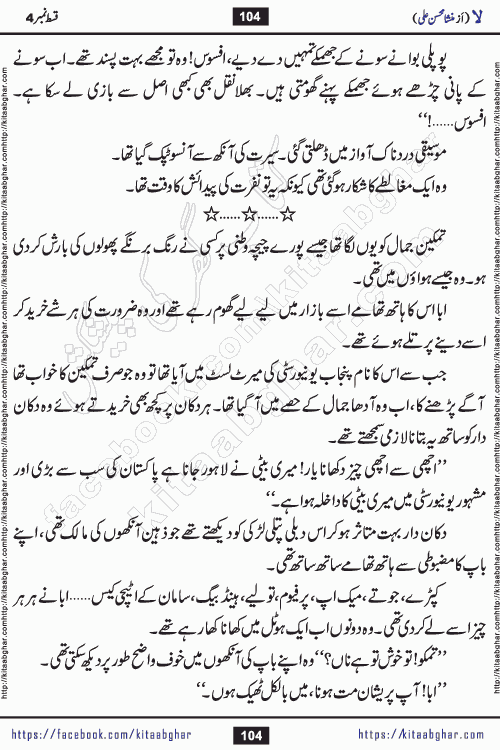 لا (از منشا محسن علی) 104 قسط نمبر 4
پوپلی بوا نے سونے کے جھمکے تمہیں دے دیے، افسوس! وہ تو مجھے بہت پسند تھے۔ اب سونے
کے پانی چڑھے ہوئے جھمکے پہنے گھومتی ہیں۔ بھلا نقل بھی کبھی اصل سے بازی لے سکا ہے۔
افسوس......!‘‘
موسیقی دردناک آواز میں ڈھلتی گئی۔ سیرت کی آنکھ سے آنسو ٹپک گیا تھا۔
وہ ایک مغالطے کا شکار ہو گئی تھی کیونکہ یہ تو نفرت کی پیدائش کا وقت تھا۔
☆......☆......☆
تمکین جمال کو یوں لگا تھا جیسے پورے چیچہ وطنی پر کسی نے رنگ برنگے پھولوں کی بارش کر دی
ہو۔ وہ جیسے ہواؤں میں تھی۔
ابا اس کا ہاتھ تھامے اسے بازار میں لیے لیے گھوم رہے تھے اور وہ ضرورت کی ہر شے خرید کر
اسے دینے پر تلے ہوئے تھے۔
جب سے اس کا نام پنجاب یونیورسٹی کی میرٹ لسٹ میں آیا تھا تو وہ جو صرف تمکین کا خواب تھا
آگے پڑھنے کا، اب وہ آدھا جمال کے حصے میں آ گیا تھا۔ ہر دکان پر کچھ بھی خریدتے ہوئے وہ دکان
دار کو ساتھ یہ بتانا لازمی سمجھتے تھے۔
’’اچھی سے اچھی چیز دکھانا یار! میری بیٹی نے لاہور جانا ہے پاکستان کی سب سے بڑی اور
مشہور یونیورسٹی میں میری بیٹی کا داخلہ ہوا ہے۔‘‘
دکان دار بہت متاثر ہو کر اس دبلی پتلی لڑکی کو دیکھتے تھے جو ذہین آنکھوں کی مالک تھی، اپنے
باپ کا مضبوطی سے ہاتھ تھامے ساتھ ساتھ تھی۔
کپڑے، جوتے، میک اپ، پرفیوم، تولیے، ہینڈ بیگ، سامان کے اٹیچی کیس...... ابا نے ہر ہر
چیز اسے لے کر دی تھی۔ وہ دونوں اب ایک ہوٹل میں کھانا کھا رہے تھے۔
’’تمکو! تو خوش تو ہے ناں؟‘‘ وہ اپنے باپ کی آنکھوں میں خوف واضح طور پر دیکھ سکتی تھی۔
’’ابا! آپ پریشان مت ہونا، میں بالکل ٹھیک ہوں۔‘‘
https://facebook.com/kitaabghar 104 https://kitaabghar.com